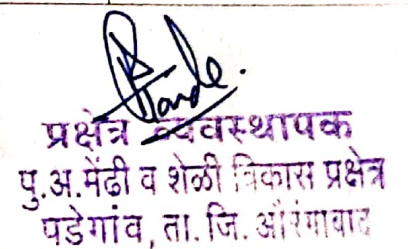 प्रक्षेत्र व्यवस्थापक
पु.अ.मेंढी व शेळी विकास प्रक्षेत्र
पडेगांव, ता. जि. औरंगाबाद